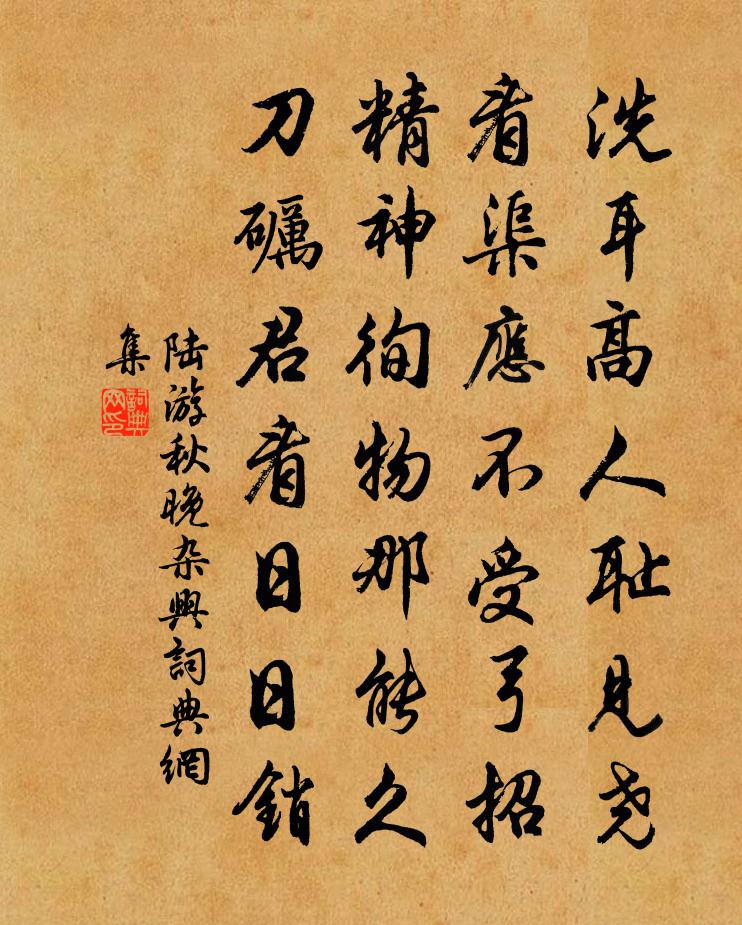 洗耳高人耻見尭
看渠應不受弓招
精神徇物那能久
刀礪君看日日銷
陆游秋晚杂興詞典網
集
詞典
网印